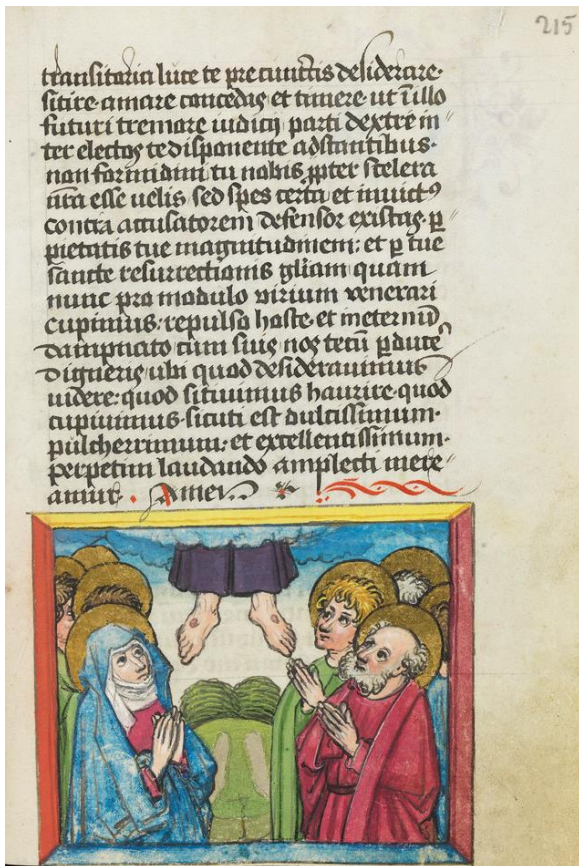 215
transitoria luce te pre cunctis desiderare·
sitire amare concedas et timere ut ī illo
futuri tremore iudicij parti dextre in
ter electos te disponente adstantibus·
non formidini tu nobis ꝓpter scelera
nr̄a esse uelis sed spes certa et inuictꝰ
contra accusatorem defensor existas· ꝑ
pietatis tue magnitudinem: et ꝑ tue
sancte resurrectionis gl̄iam quam
nunc pro modulo virium venerari
cupimus: repulso hoste et ineternū
dampnato cum suis nos tecū ꝑducē
digneris ubi quod desiderauimus
uidere: quod sitiuimus haurire· quod
cupiuimus· sicuti est dulcissimum·
pulcherrimum: et excellentissimum·
perpetim laudando amplecti mere
amur· Amen·